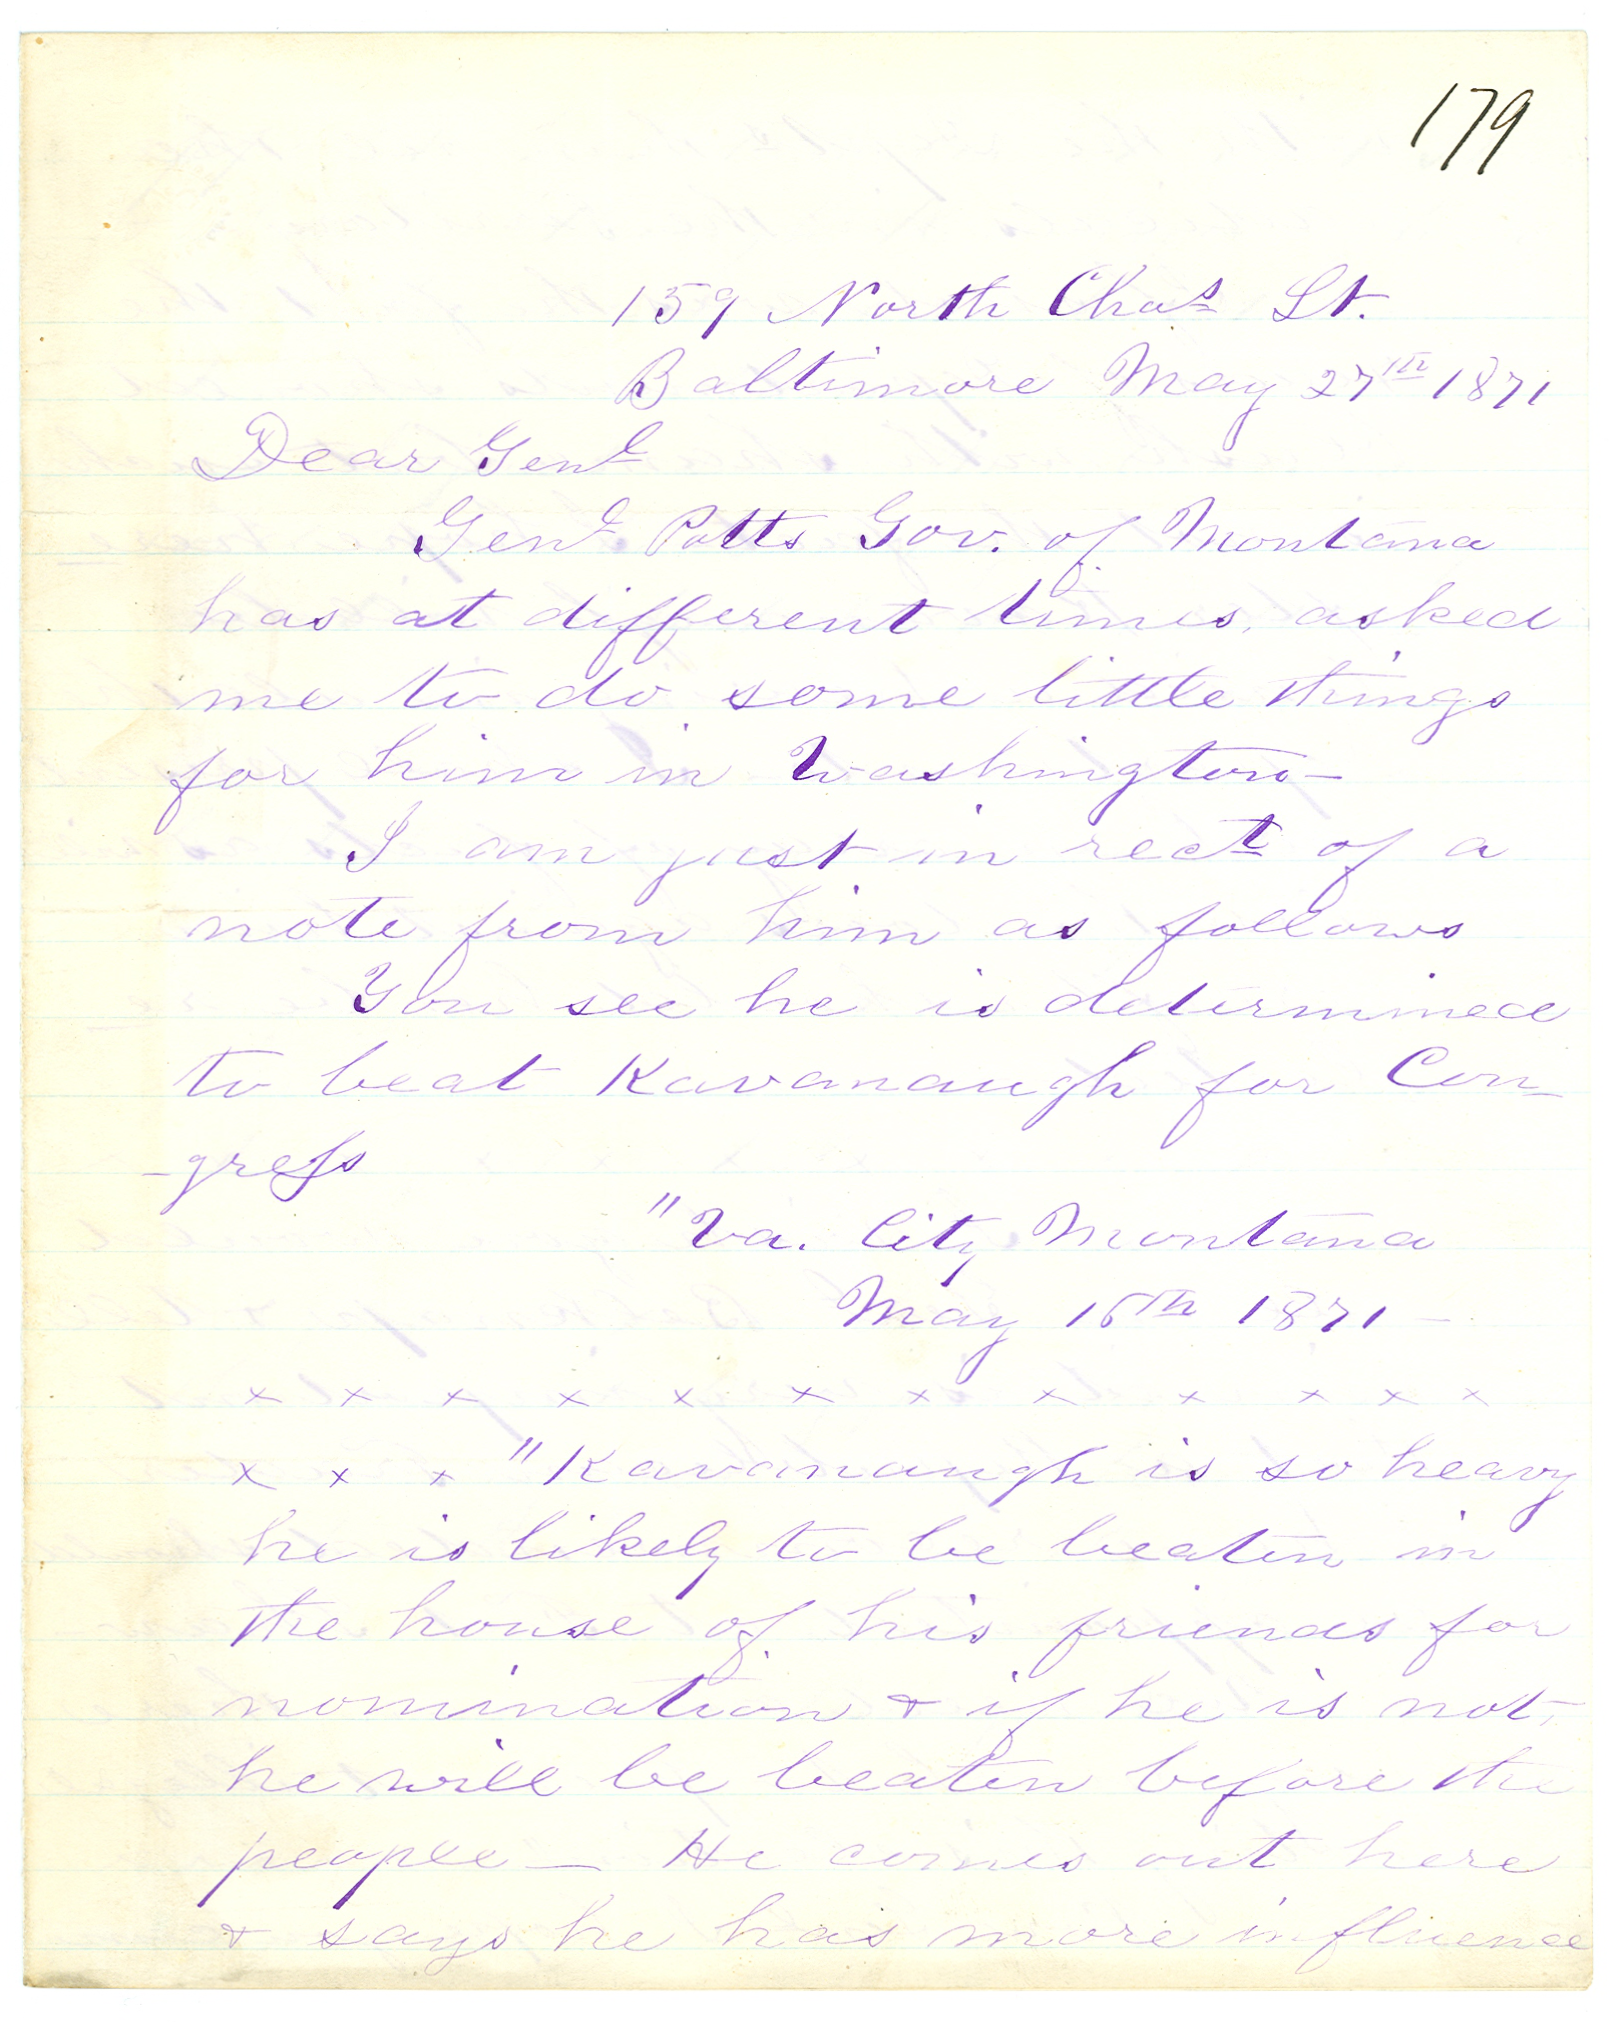 179
159 North Chas St.
Baltimore May 27th 1871
Dear Genl
Genl Potts Gov. of Montana
has at different times, asked
me to do some little things
for him in Washington—
I am just in rect of a
note from him as follows
You see he is determined
to beat Kavanaugh for Con-
-gress
"Va. City Montana
May 16th 1871—
x x x x x x x x x x x x
x x x "Kavanaugh is so heavy
he is likely to be beaten in
the house of his friends for
nomination & if he is not,
he will be beaten before the
people— He comes out here
& says he has more influence